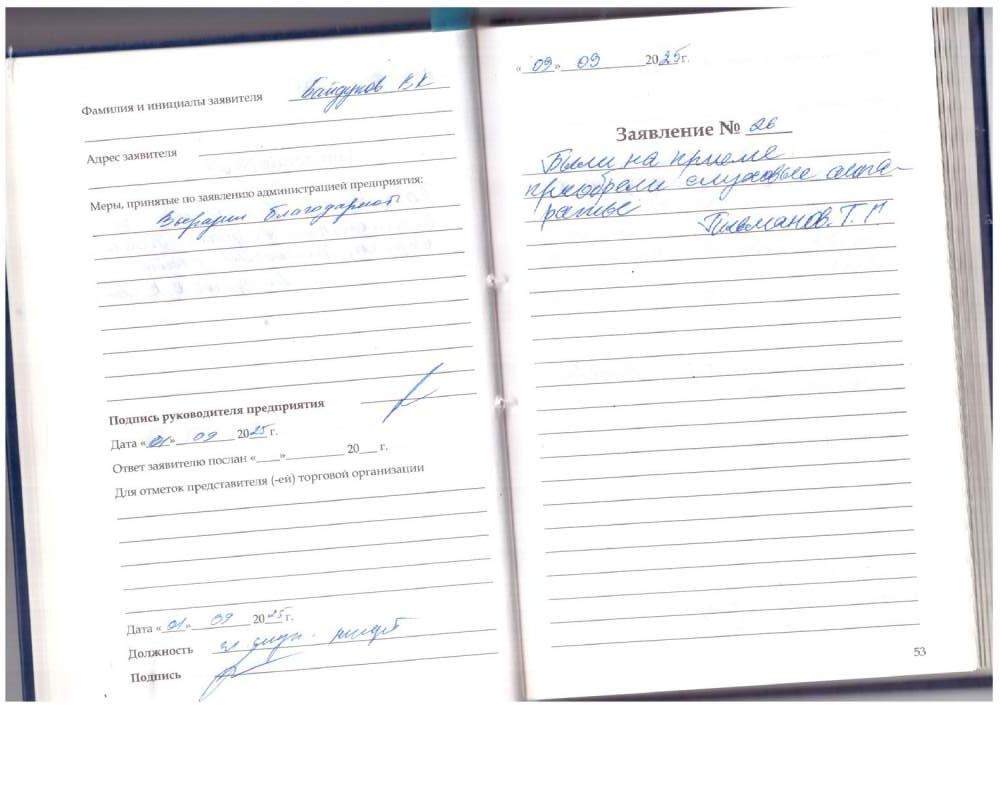 Фамилия и инициалы заявителя Байдуков В К
Адрес заявителя
Меры, принятые по заявлению администрацией предприятия:
благодарност
Подпись руководителя предприятия
Дата «01» 09 2025 г.
Ответ заявителю послан «___»__________ 20___ г.
Для отметок представителя (-ей) торговой организации
Дата «01» 09 2025 г.
Должность
Подпись
«03» 09 2025г.
Заявление № 26
Были на приеме
приобрели слуховые аппа-
раты
Т.
53